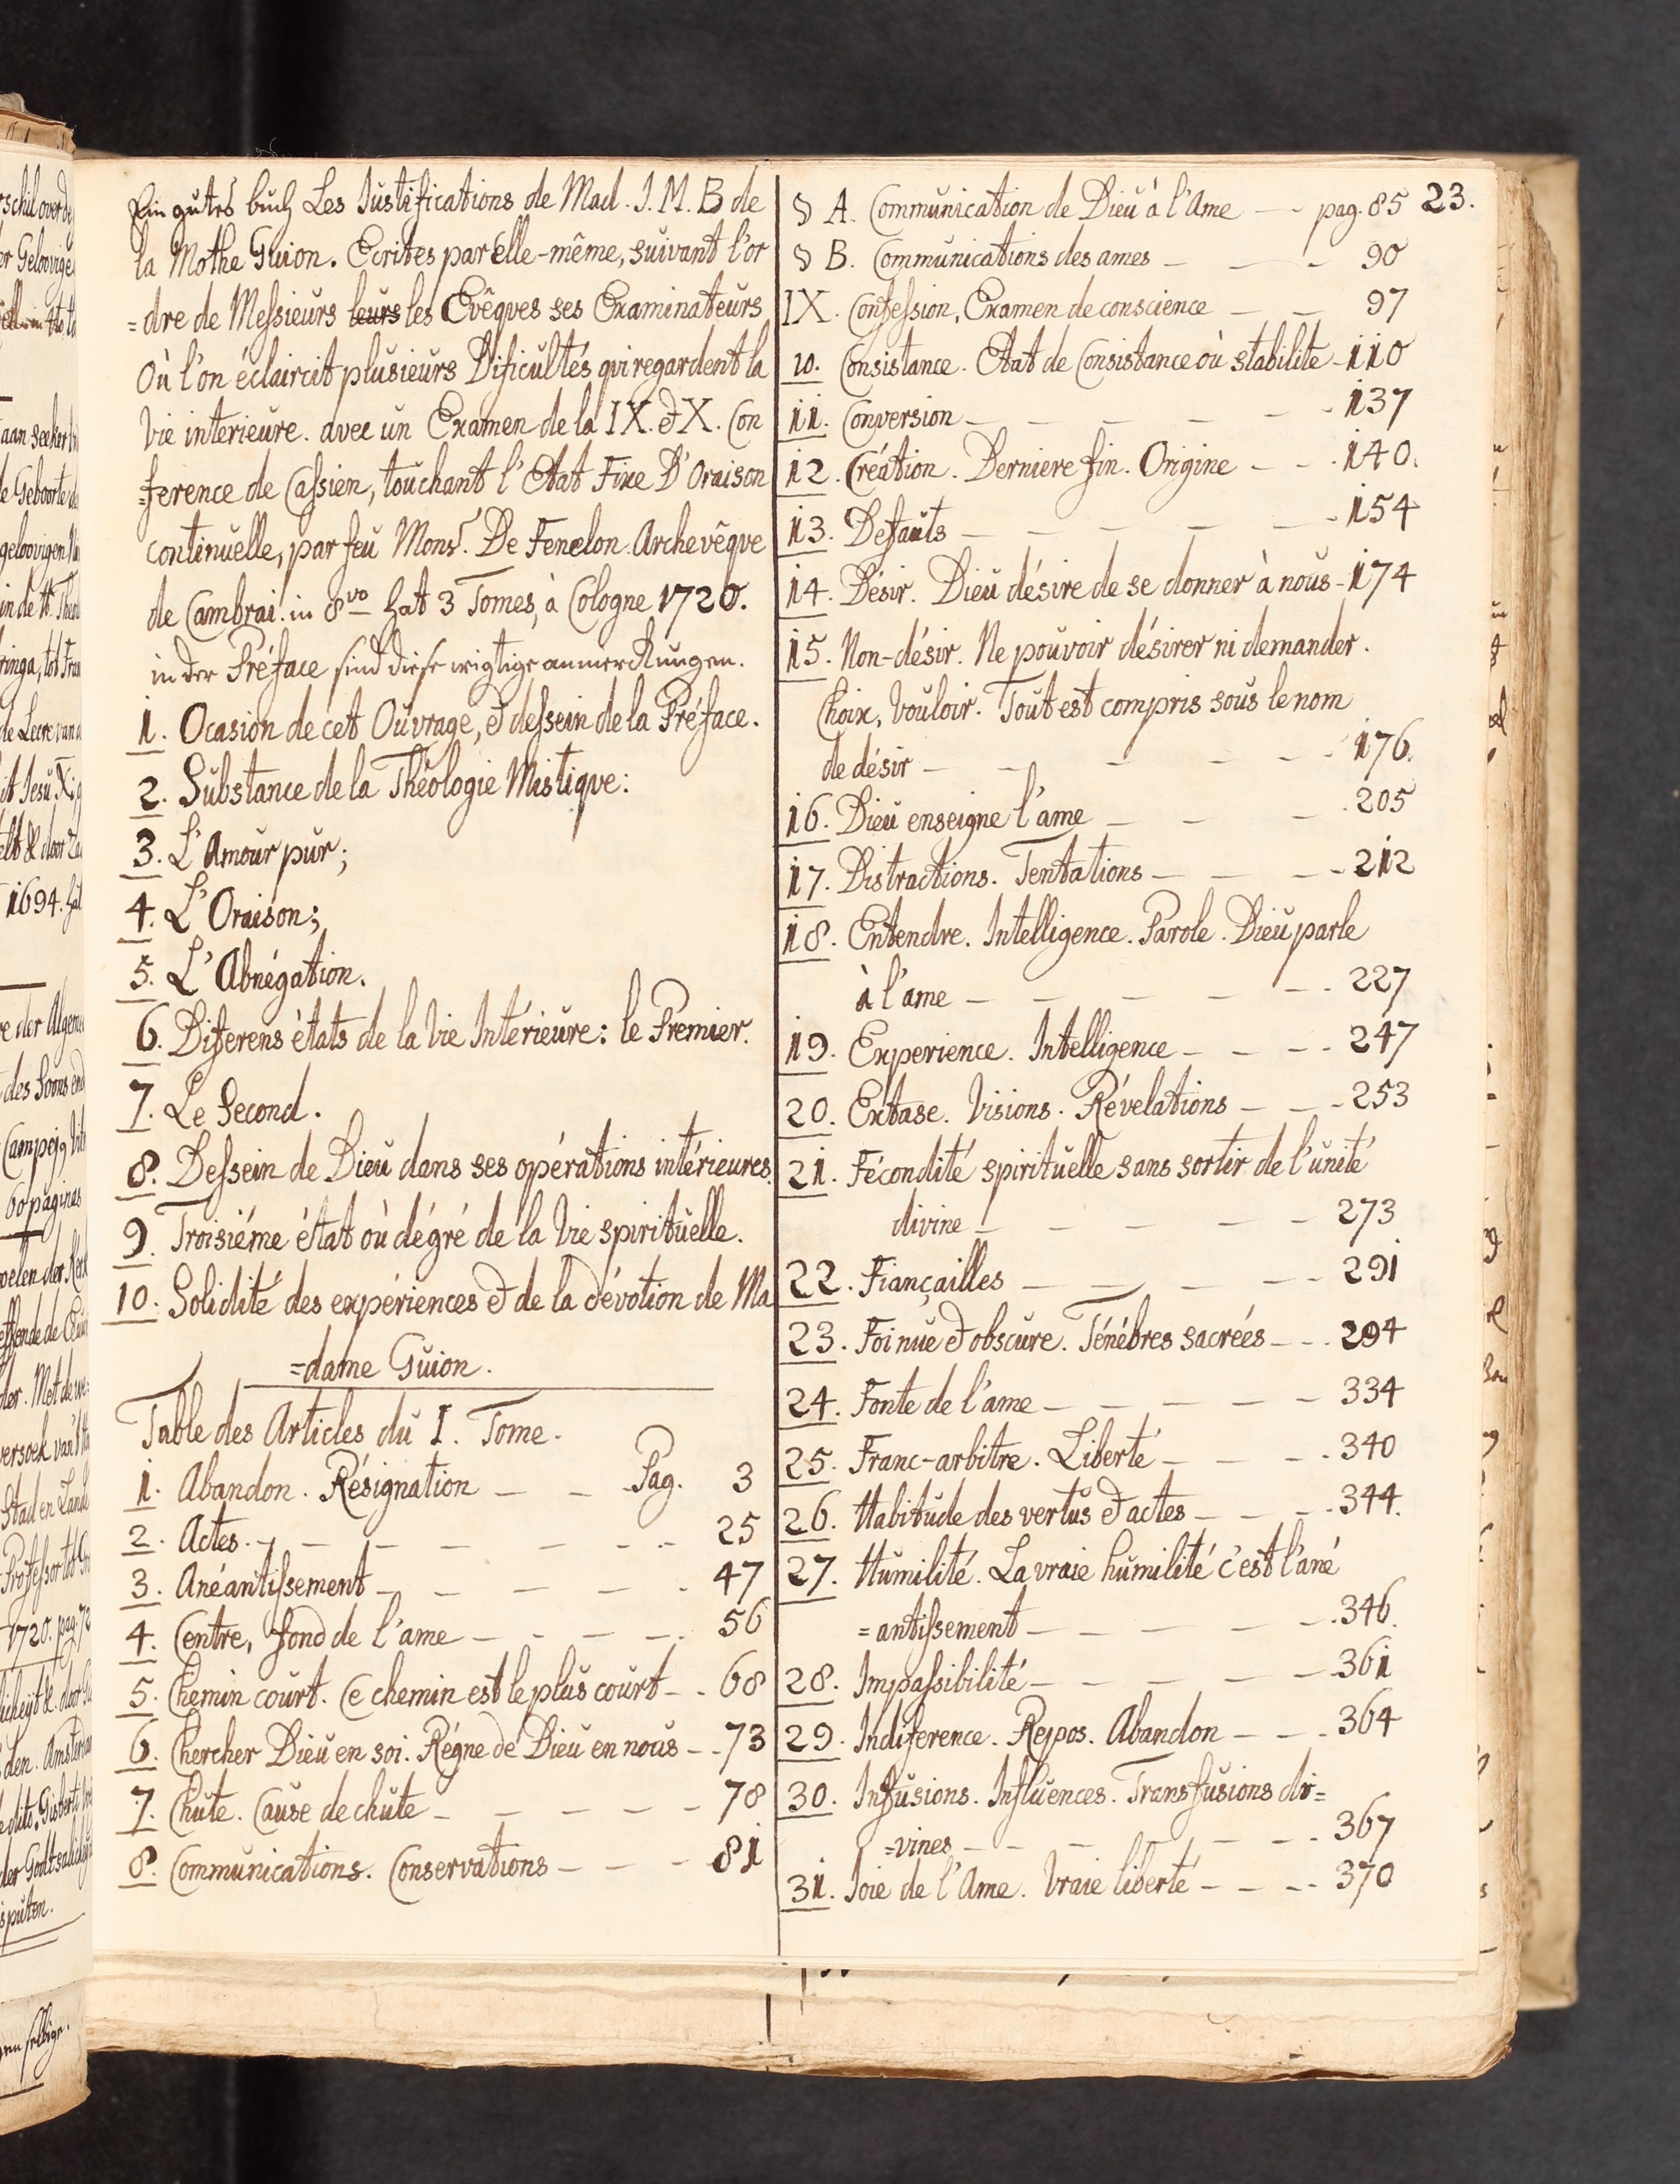 Ein gutes buch Les Justifications de Mad. J. M. B de
la Mothe Guion. Ecrites par elle-même, suivant l'or
=dre de Messieurs leurs les Evêques ses Examinateurs
Où l'on éclaircit plusieurs Dificultés qui regardent la
Vie interieure. avec un Examen de la IX. & X. Con
=ference de Cassien, touchant l'Etat Fixe D'Oraison
continuelle, par feu Monsr. De Fenelon Archevêque
de Cambrai. in 8vo hat 3 Tomes, à Cologne 1720.
in der Préface sind diese wigtige anmerckungen.
1. Ocasion de cet Ouvrage, & dessein de la Préface.
2. Substance de la Théologie Mistique:
3. L'Amour pur;
4. L'Oraison;
5. L'Abnégation.
6. Diferens ètats de la Vie Intérieure: le Premier.
7. Le Second.
8. Dessein de Dieu dans ses opérations intérieures.
9. Troisiéme état où dégré de la Vie spirituelle.
10. Solidité des expériences & de la dévotion de Ma
=dame Guion.
Table des Articles du I. Tome.
1. Abandon. Résignation — — Pag. 3
2. Actes. — — — — — — 25
3. Anéantissement — — — — — 47
4. Centre, fond de l'ame — — — — 56
5. Chemin court. Ce chemin est le plus court — 68
6. Chercher Dieu en soi. Régne de Dieu en nous — 73
7. Chute. Cause de chute — — — — — 78
8. Communications. Conservations — — — 81
8 A. Communication de Dieu à l'Ame — pag. 85 23.
8 B. Communications des ames — — — 90
IX. Confession, Examen de conscience — — 97
10. Consistance. Etat de Consistance où stabilite — 110
11. Conversion — — — — — 137
12. Création. Derniere fin. Origine — — 140.
13. Defauts — — — — — — 154
14. Désir. Dieu désire de se donner à nous — 174
15. Non-désir. Ne pouvoir désirer ni demander.
Choix, Vouloir. Tout est compris sous le nom
de désir — — — — — 176.
16. Dieu enseigne l'ame — — — 205
17. Distractions. Tentations — — — 212
18. Entendre. Intelligence. Parole. Dieu parle
à l'ame — — — — — 227
19. Experience. Intelligence — — — 247
20. Extase. Visions. Révelations — — 253
21. Fécondité spirituelle sans sortir de l'unité
divine — — — — — — 273
22. Fiançailles — — — — — 291
23. Foi nue & obscure. Ténébres sacrées — — 294
24. Fonte de l'ame — — — — — 334
25. Franc-arbitre. Liberté — — — 340
26. Habitude des vertus & actes — — — 344.
27. Humilité. La vraie humilité c'est l'ané
=antissement — — — — — 346.
28. Impassibilité — — — — — 361
29. Indiference. Repos. Abandon — — 364
30. Infusions. Influences. Transfusions di=
=vines — — — — — 367
31. Joie de l'Ame. Vraie liberté — — — 370